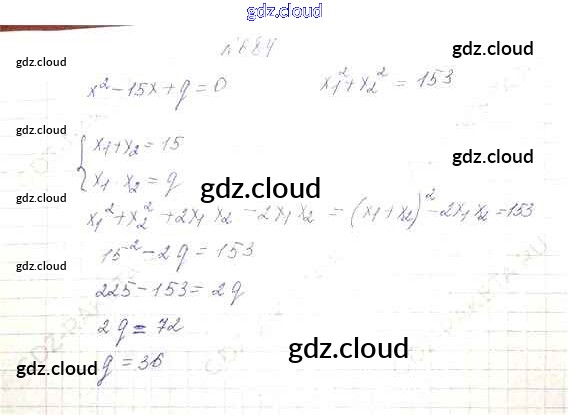 gdz.cloud
№ 684
gdz.cloud
gdz.cloud
x² - 15x + q = 0 x₁² + x₂² = 153
gdz.cloud
x₁ + x₂ = 15
gdz.cloud
x₁ · x₂ = q
gdz.cloud
gdz.cloud
x₁² + x₂² + 2x₁x₂ - 2x₁x₂ = (x₁ + x₂)² - 2x₁x₂ = 153
15² - 2q = 153
gdz.cloud
225 - 153 = 2q
2q = 72
gdz.cloud
q = 36
gdz.cloud